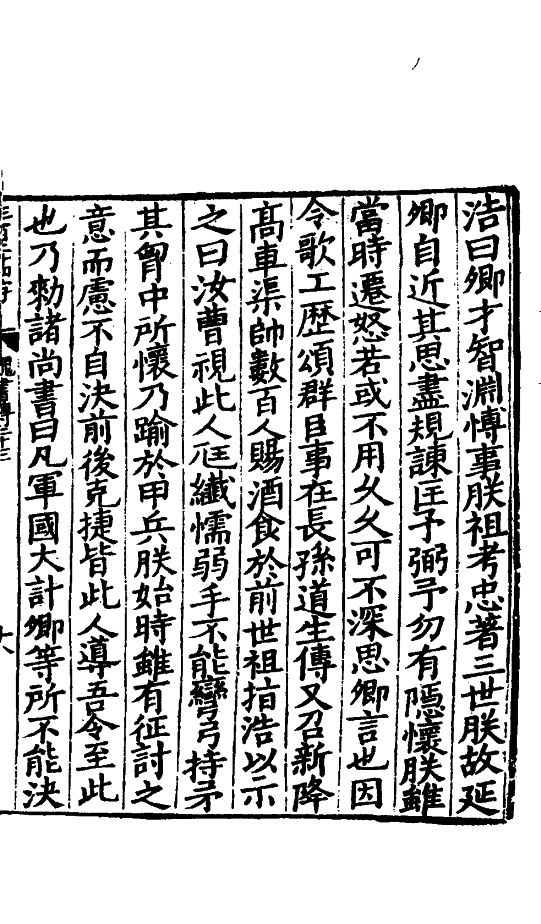 浩曰卿才智淵愽事朕祖考忠著三世朕故延
卿自近其思盡規諫匡予弼予勿有隱懷朕雖
當時遷怒若或不用久久可不深思卿言也因
令歌工歷頌群臣事在長孫道生傳又召新降
高車渠帥數百人賜酒食於前世祖指浩以示
之曰汝曹視此人尫纖懦弱手不能彎弓持矛
其胷中所懷乃踰於甲兵朕始時雖有征討之
意而慮不自決前後克捷皆此人導吾令至此
也乃勑諸尚書曰凡軍國大計卿等所不能決
魏書傳二十三